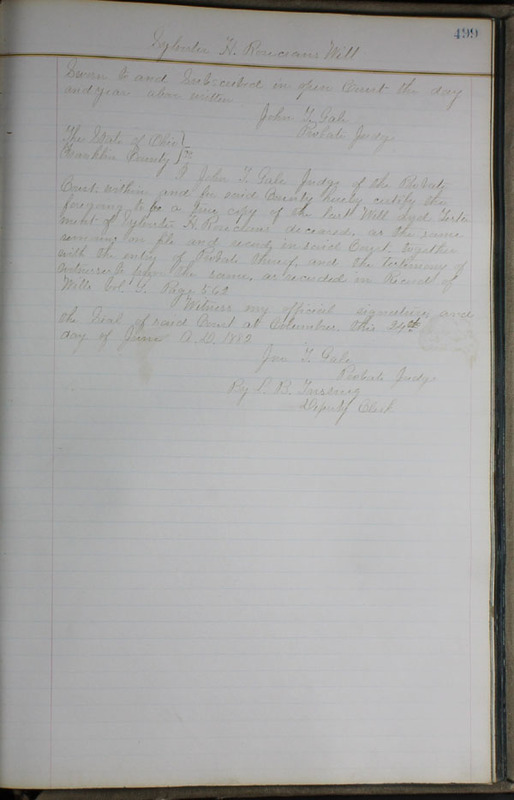 499
Sylvester H. Will
Sworn to and Subscribed in open Court the day
and year above written
John T. Gale
Probate Judge
The State of Ohio } ss
Franklin County
I John T. Gale Judge of the Probate
Court within and for said County hereby certify the
foregoing to be a true copy of the last Will and Testa
ment of Sylvester H. deceased, as the same
remains on file and record in said Court, together
with the entry of Probate thereof, and the testimony of
witnesses to prove the same, as recorded in Record of
Wills Vol. Page 562
Witness my official signature and
the Seal of said Court at Columbus this 24th
day of June A.D. 1882
Jno T. Gale
Probate Judge
By L. B.
Deputy Clerk